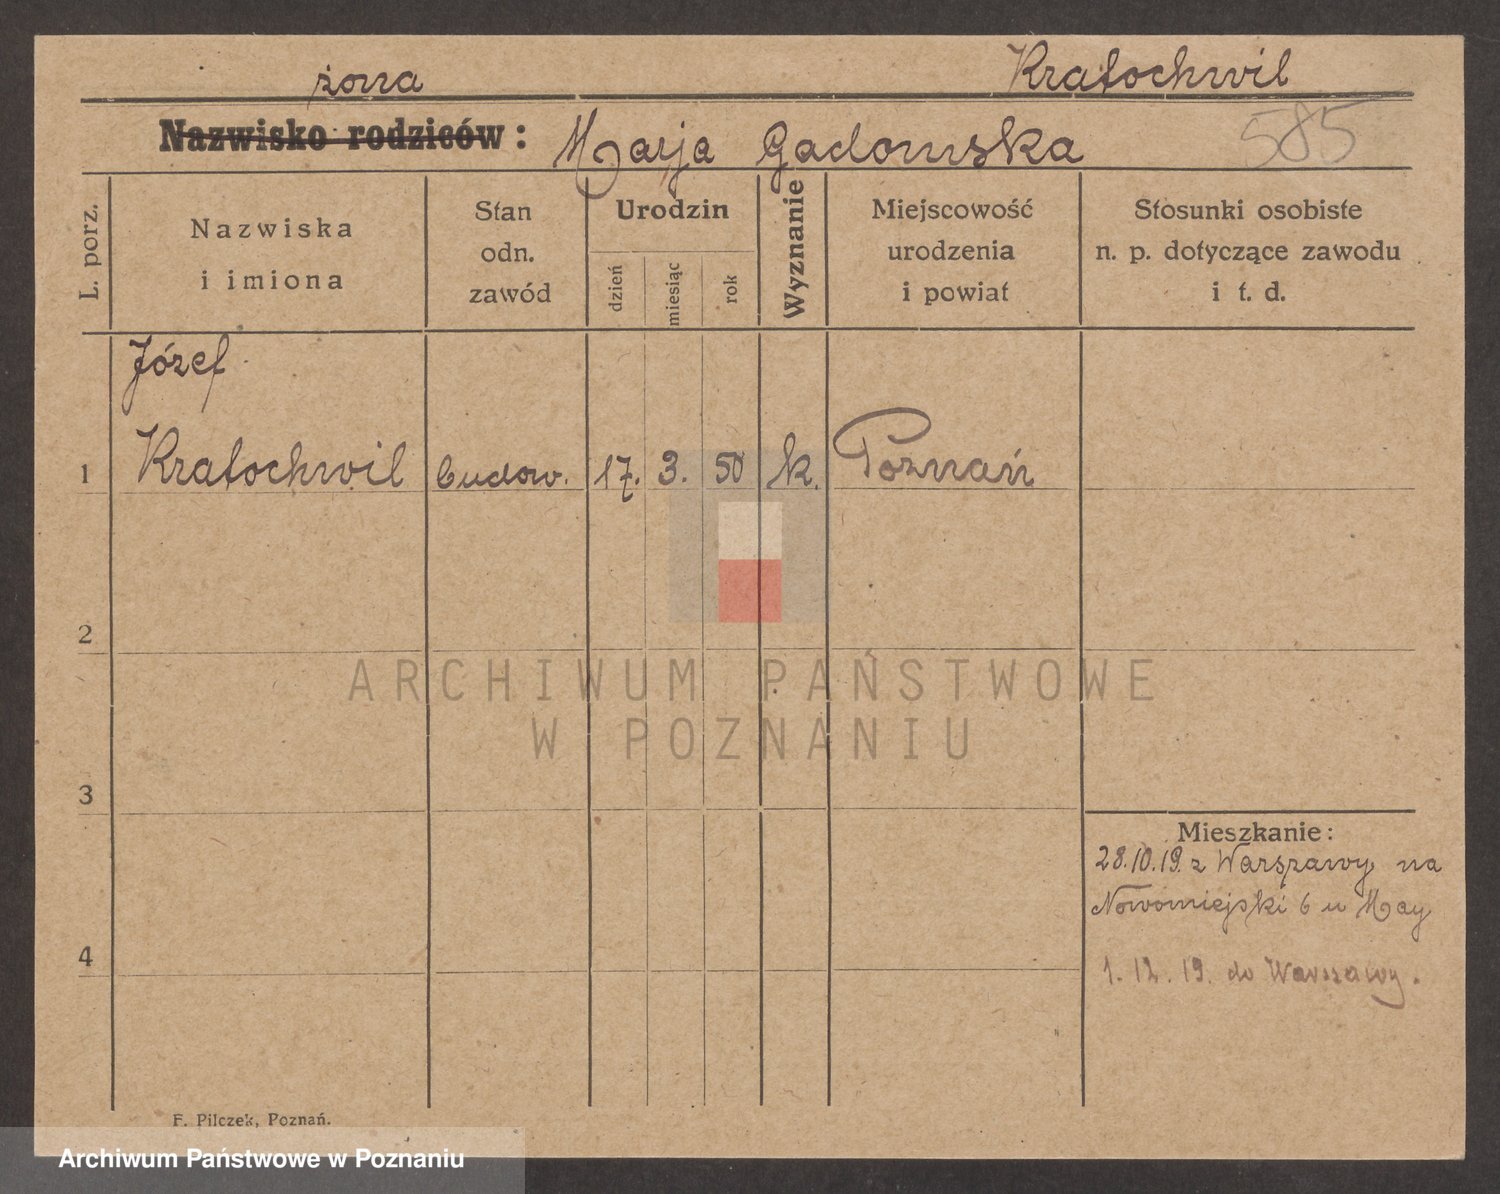 żona Kratochwil
Nazwisko rodziców: Marja Gadomska 585
L. porz.
Nazwiska
i imiona
Stan
odn.
zawód
Urodzin
dzień
miesiąc
rok
Wyznanie
Miejscowość
urodzenia
i powiat
Stosunki osobiste
n. p. dotyczące zawodu
i t. d.
Józef
1 Kratochwil budow. 17. 3. 50 k. Poznań
2
ARCHIWUM PAŃSTWOWE
W POZNANIU
3
Mieszkanie:
28.10.19. z Warszawy na
Nowomiejski 6 u May
4
1. 12. 19. do Warszawy.
F. Pilczek, Poznań.
Archiwum Państwowe w Poznaniu